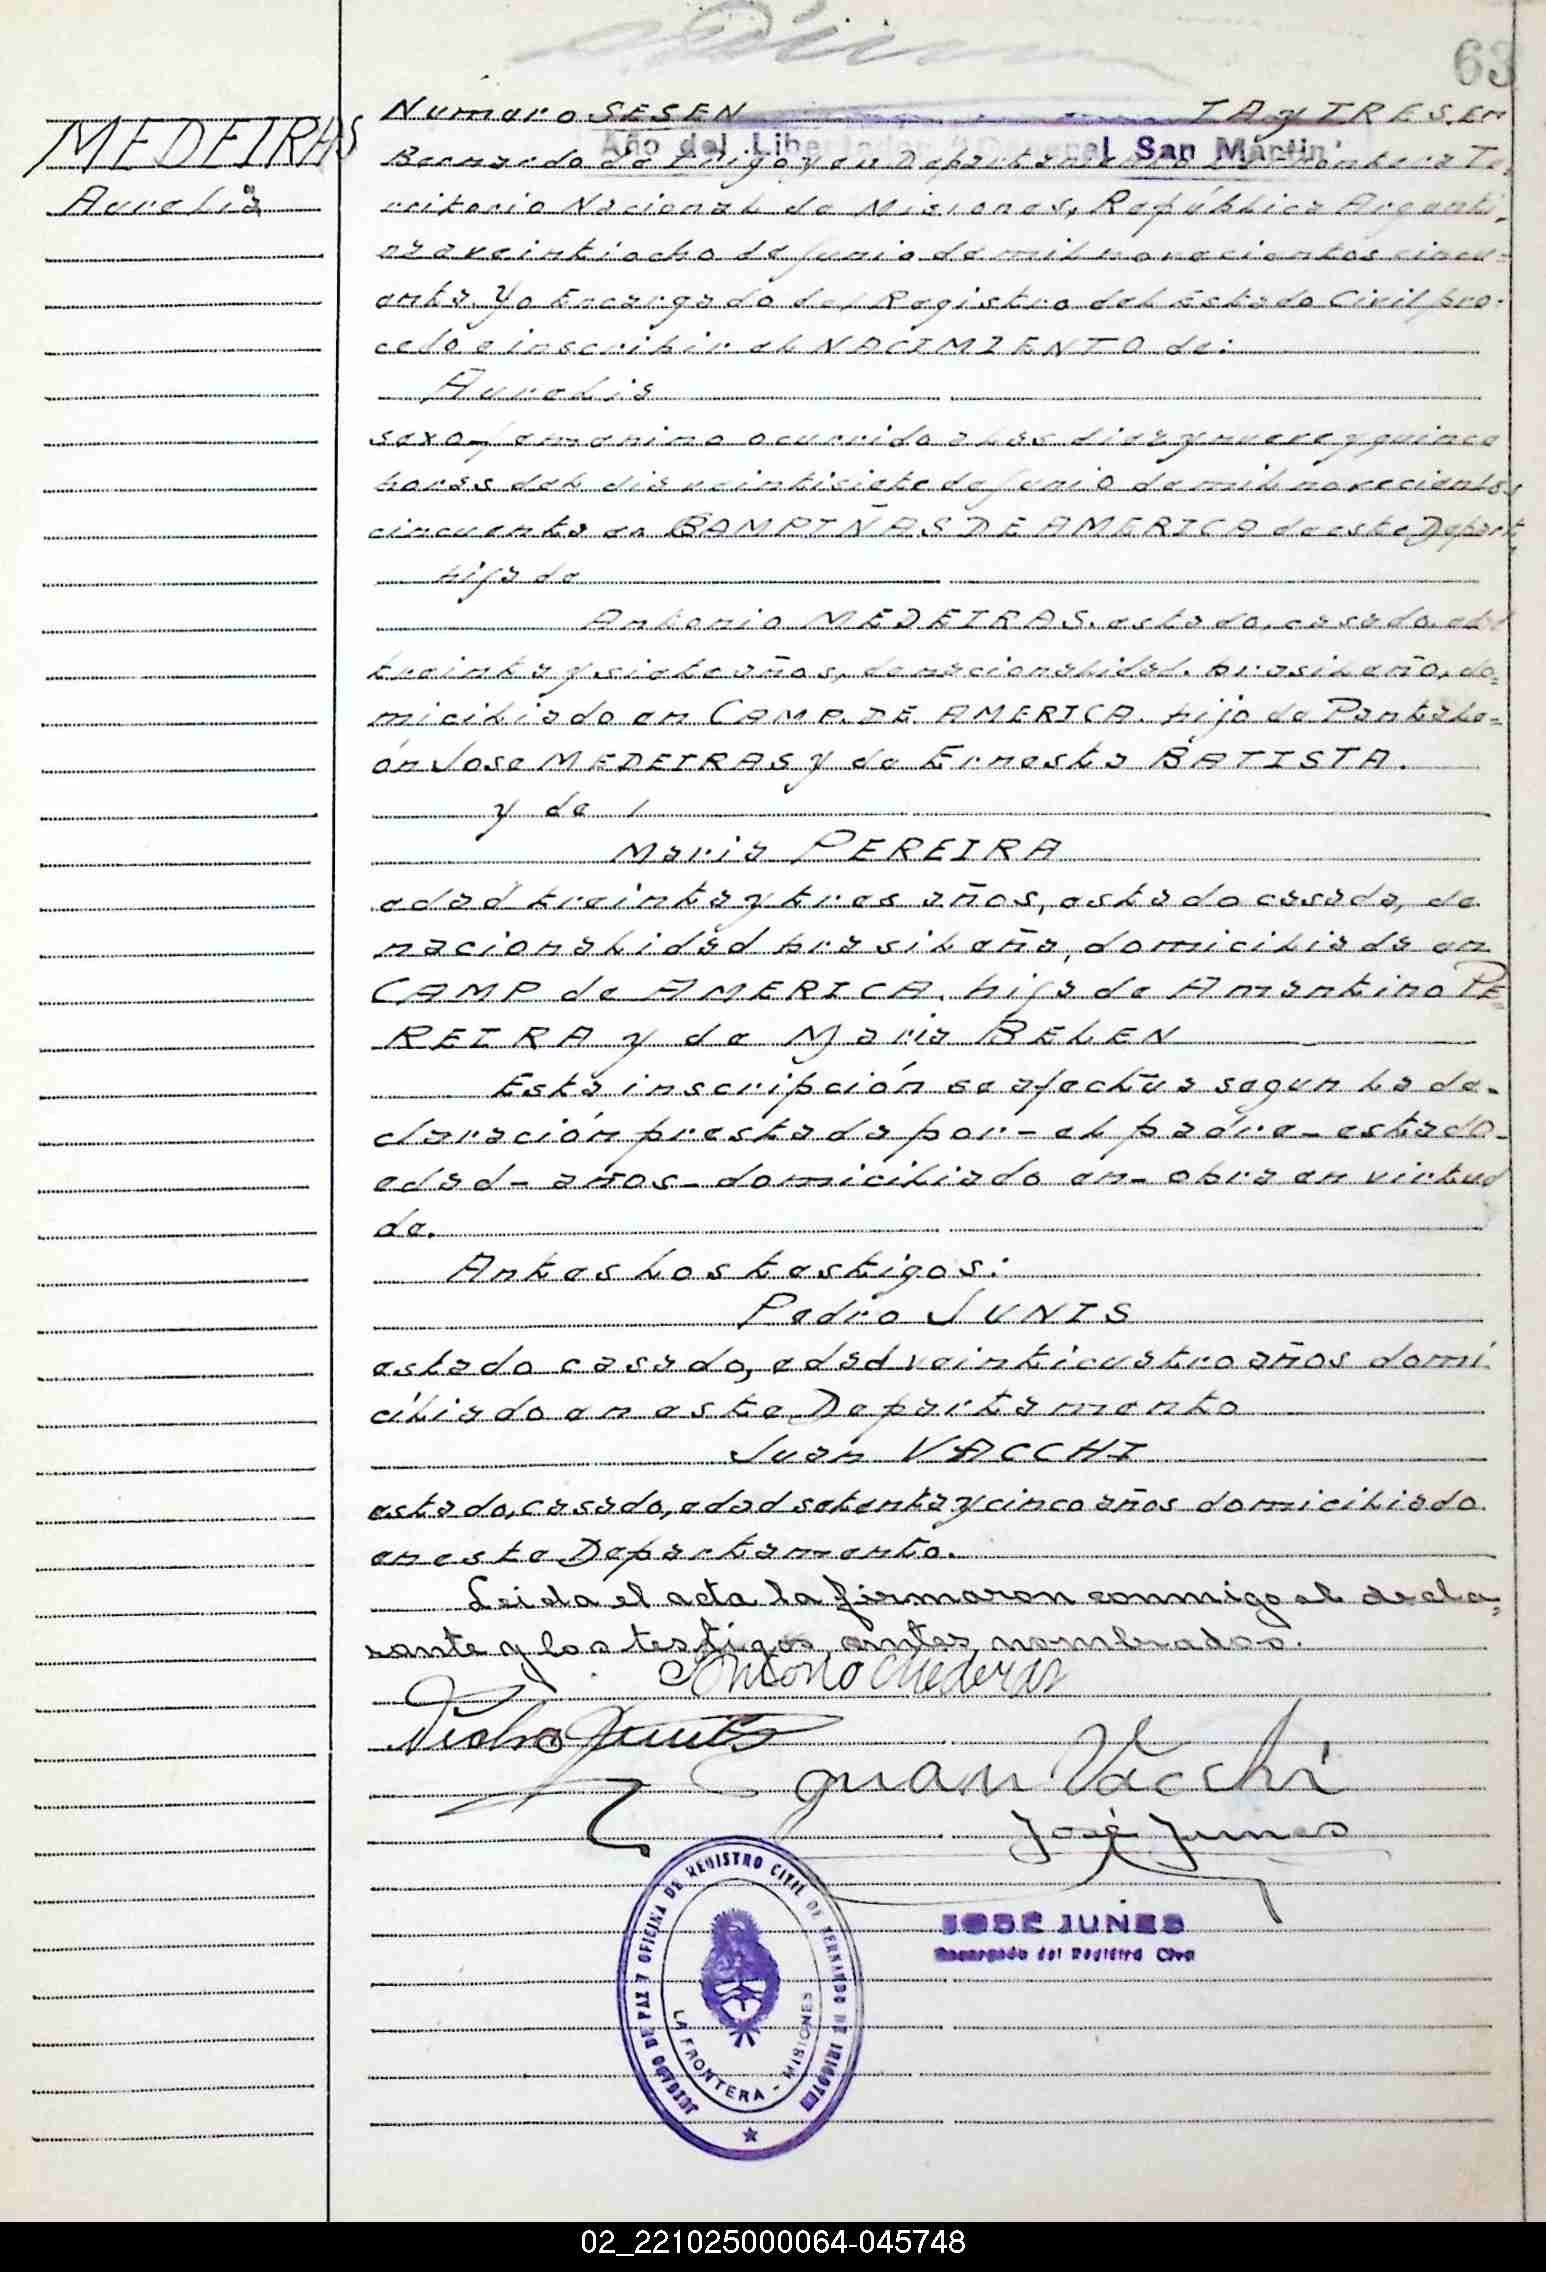 63
MEDEIRAS
Aurelia
Numero SESEN TA y TRES. En
Año del Libertador General San Martin
Bernardo de Irigoyen Departamento Frontera Te-
rritorio Nacional de Misiones, República Argenti-
na a veintiocho de junio de mil novecientos cincu-
enta. Yo Encargado del Registro del Estado Civil pro-
cedo a inscribir el NACIMIENTO de:
Aurelia
sexo femenino ocurrido a las diez y nueve y quince
horas del dia veintisiete de junio de mil novecientos
cincuenta en CAMPIÑAS DE AMERICA de este Depart.
hija de
Antonio MEDEIRAS, estado, casado, edad
treinta y siete años, de nacionalidad brasileño, do-
miciliado en CAMP. DE AMERICA. hijo de Pantale-
ón Jose MEDEIRAS y de Ernesta BATISTA.
y de
Maria PEREIRA
edad treinta y tres años, estado casada, de
nacionalidad brasileña, domiciliada en
CAMP de AMERICA. hija de Amantino PE-
REIRA y de Maria BELEN
Esta inscripción se efectúa segun la de-
claración prestada por - el padre - estado -
edad - años - domiciliado en - obra en virtud
de.
Antes los testigos:
Pedro JUNIS
estado casado, edad veinticuatro años domi
ciliado en este Departamento
Juan VACCHI
estado, casado, edad setenta y cinco años domiciliado
en este Departamento.
Leida el acta la firmaron conmigo el decla-
rante y los testigos antes nombrados.
Antonio Mederas
Pedro Junis
Juan Vacchi
José Junes
JOSÉ JUNES
Encargado del Registro Civil
JUZGADO DE PAZ Y OFICINA DE REGISTRO CIVIL DE BERNARDO DE IRIGOYEN
LA FRONTERA - MISIONES
02_221025000064-045748